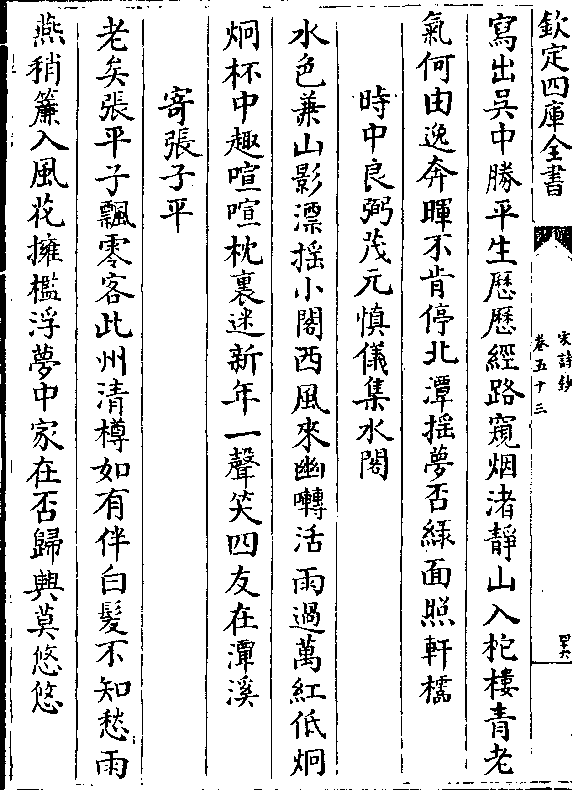 欽定四庫全書
宋詩鈔
卷五十三
四六
寫出吳中勝平生歷歷經路窺烟渚靜山入柁樓青老
氣何由逸奔暉不肯停北潭揺夢否綠面照軒櫺
時中良弼茂元慎儀集水閣
水色蒹山影漂揺小閣西風來幽囀活雨過萬紅低炯
炯杯中趣喧喧枕裏迷新年一聲笑四友在潭溪
寄張子平
老矣張平子飄零客此州清樽如有伴白髮不知愁雨
燕稍簾入風花擁檻浮夢中家在否歸興莫悠悠